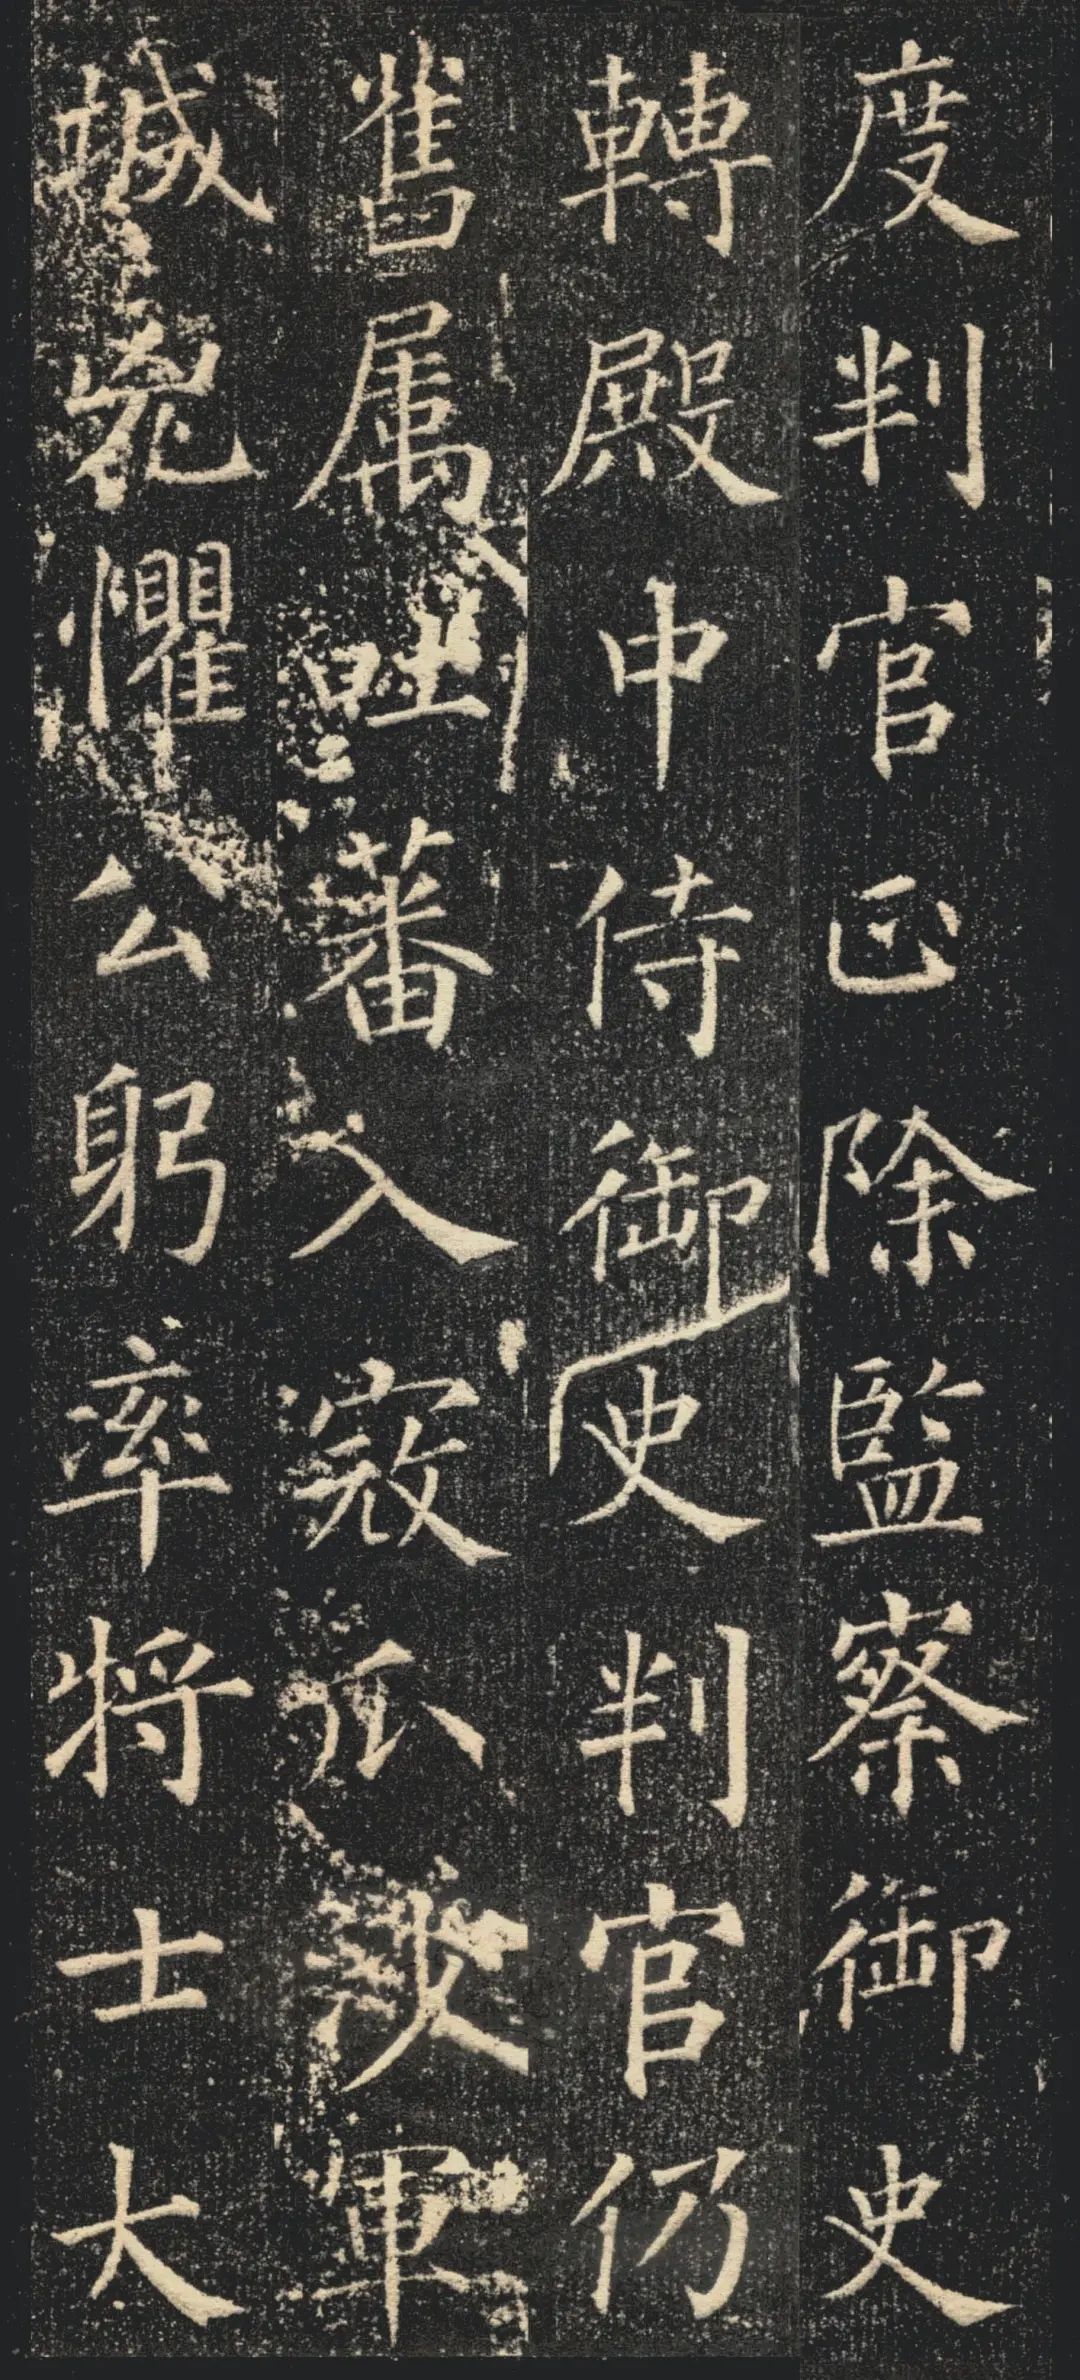 度判官正除監察御史
轉殿中侍御史判官仍
舊属吐蕃入寇瓜沙軍
城兇懼公躬率將士大